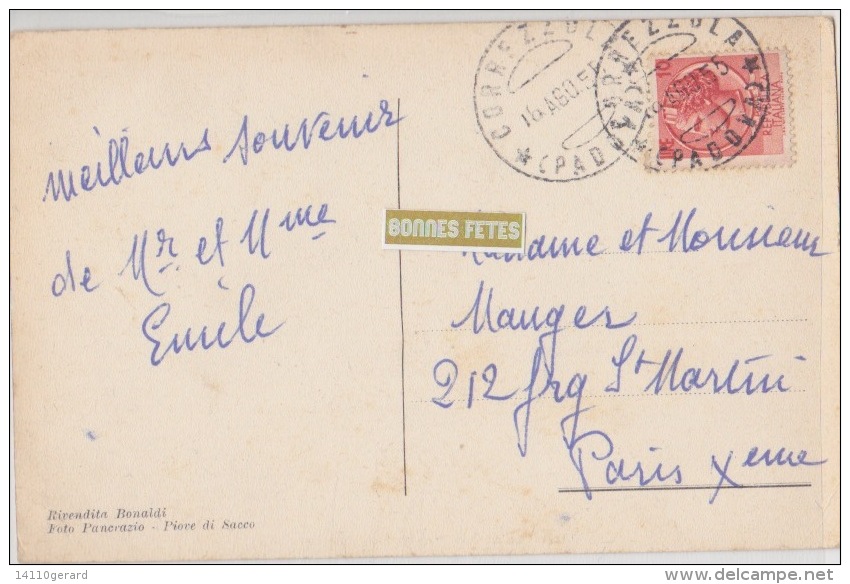 CORREZZOLA
16 AGO.55
★ (PADOVA) ★
CORREZZOLA
AGO.55
★ (PADOVA) ★
10
REP. ITALIANA
meilleurs souvenir
de Mr. et Mme
Emile
BONNES FETES
Madame et Monsieur
Mauger
212 frg St Martin
Paris Xeme
Rivendita Bonaldi
Foto Pancrazio - Piove di Sacco
14110gerard
delcampe.net